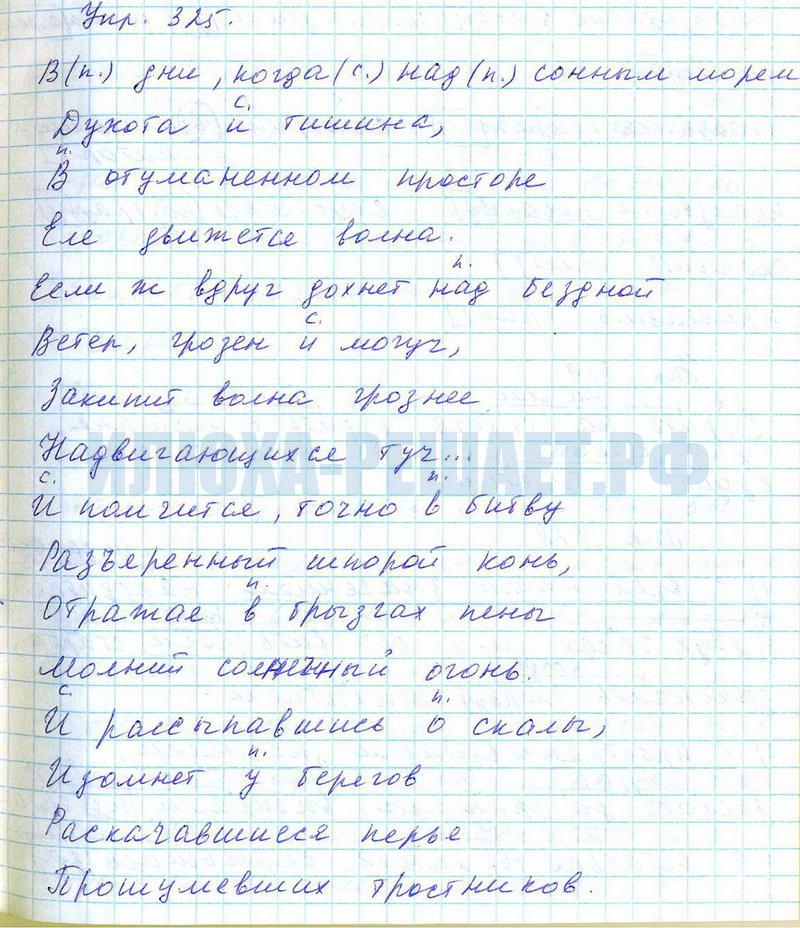 Упр. 325.
В(п.) дни, когда(с.) над(п.) сонным морем
с.
Духота и тишина,
п.
В отуманенном просторе
Еле движется волна.
п.
Если ж вдруг дохнет над бездной
с.
Ветер, грозен и могуч,
Закипит волна грознее
Надвигающихся туч...
ИЛЮХА-РЕШАЕТ.РФ
с. п.
И помчится, точно в битву
Разъяренный шпорой конь,
п.
Отражая в брызгах пены
Молний солнечный огонь.
с. п.
И рассыпавшись о скалы,
п.
Изомнет у берегов
Раскачавшиеся перья
Прошумевших тростников.